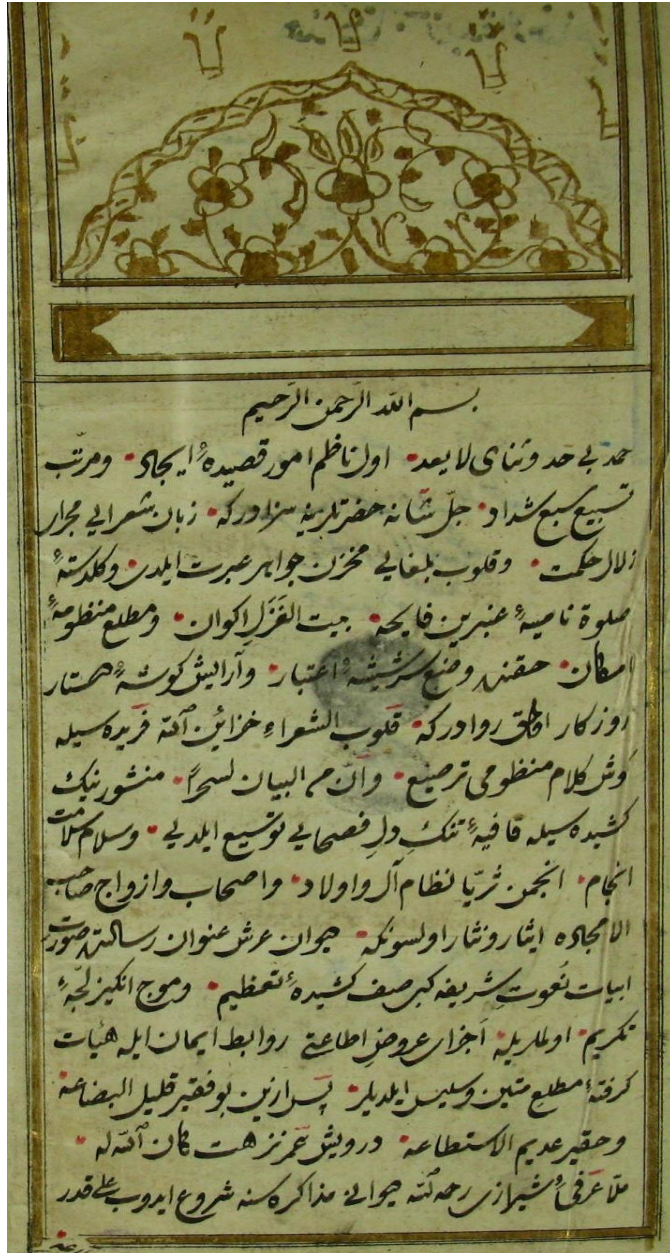 بسم الله الرّحمن الرّحيم
حمد بی حد وثنای لا یعد اول ناظم امور قصیدهٔ ایجاد ومرتّب
تسبیع سبع شداد جلّ شانه حضرتلرینه سزادرکه زبان شعرایی مجرای
زلال حکمت وقلوب بلغایی مخزن جواهر عبرت ایلدی وکلدستهٔ
صلوة نامیهٔ عنبرین فایحه بیت الغزل اکوان ومطلع منظومهٔ
امکان حقنه وضع سرشیشهٔ اعتبار وآرایش کوشهٔ دستار
روزکار اولمق روادرکه قلوب الشعراء خزائن الله فریده سیله
کوش کلام منظومی ترصیع وانّ من البیان لسحراً منشور نیک
کشیده سیله قافیهٔ تنک دل فصحایی توسیع ایلدی وسلام سلامت
انجام انجمن ثریّا نظام آل واولاد واصحاب وازواج صاحب
الامجاده ایثار ونثار اولسونکه دیوان عرش عنوان رسالتده صورت
ابیات نعوت شریفه کبی صف کشیدهٔ تعظیم وموج انکیز لجّهٔ
تکریم اولدیلر اجزای عروض اطاعتی روابط ایمان ایله هیئات
کرفتهٔ مطلع متین وسلیس ایلدیلر پس ازین بو فقیر قلیل البضاعه
وحقیر عدیم الاستطاعه درویش عمر نزهت کان الله له
ملّا عرفیٔ شیرازی رحمه الله دیوانی مذاکره سنه شروع ایدوب علی قدر